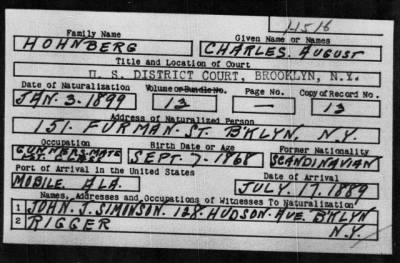 H516
Family Name Given Name or Names
HOHNBERG CHARLES. AUGUST
Title and Location of Court
U. S. DISTRICT COURT, BROOKLYN, N.Y.
Date of Naturalization Volume or Bundle No. Page No. Copy of Record No.
JAN. 3. 1899 13 — 13
Address of Naturalized Person
151. FURMAN. ST. B'KLYN, N.Y.
Occupation Birth Date or Age Former Nationality
GUNNER. MATE
1ST. CLASS SEPT. 7. 1868 SCANDINAVIAN
Port of Arrival in the United States Date of Arrival
MOBILE ALA. JULY. 17. 1889
Names, Addresses and Occupations of Witnesses To Naturalization
1 JOHN. J. SIMONSON. 128. HUDSON. AVE. B'KLYN
2 RIGGER N.Y.